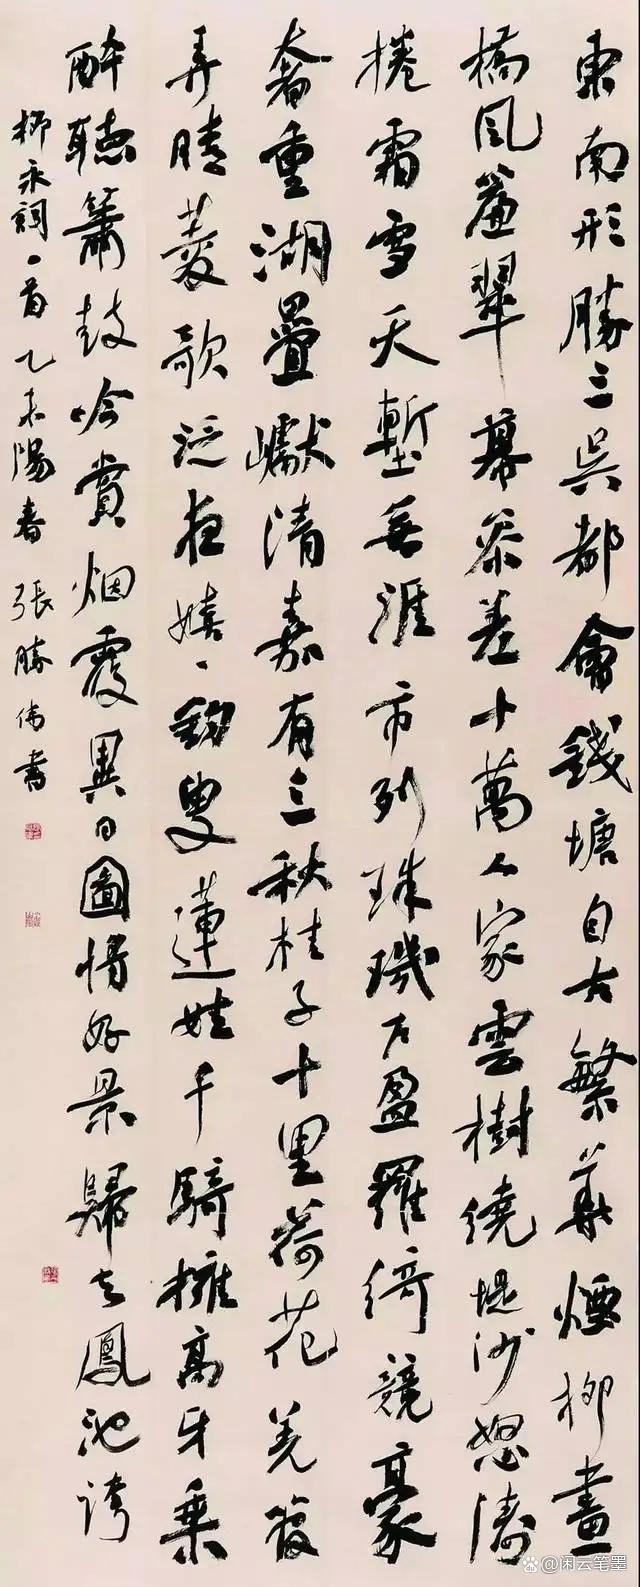 東南形勝三吳都會錢塘自古繁華煙柳畫
橋風簾翠幕參差十萬人家雲樹繞堤沙怒濤
捲霜雪天塹無涯市列珠璣户盈羅綺競豪
奢重湖疊巘清嘉有三秋桂子十里荷花羌管
弄晴菱歌泛夜嬉〻釣叟蓮娃千騎擁高牙乘
醉聽簫鼓吟賞烟霞異日圖將好景歸去鳳池誇
柳永詞一首乙未陽春張勝偉書
闲云笔墨